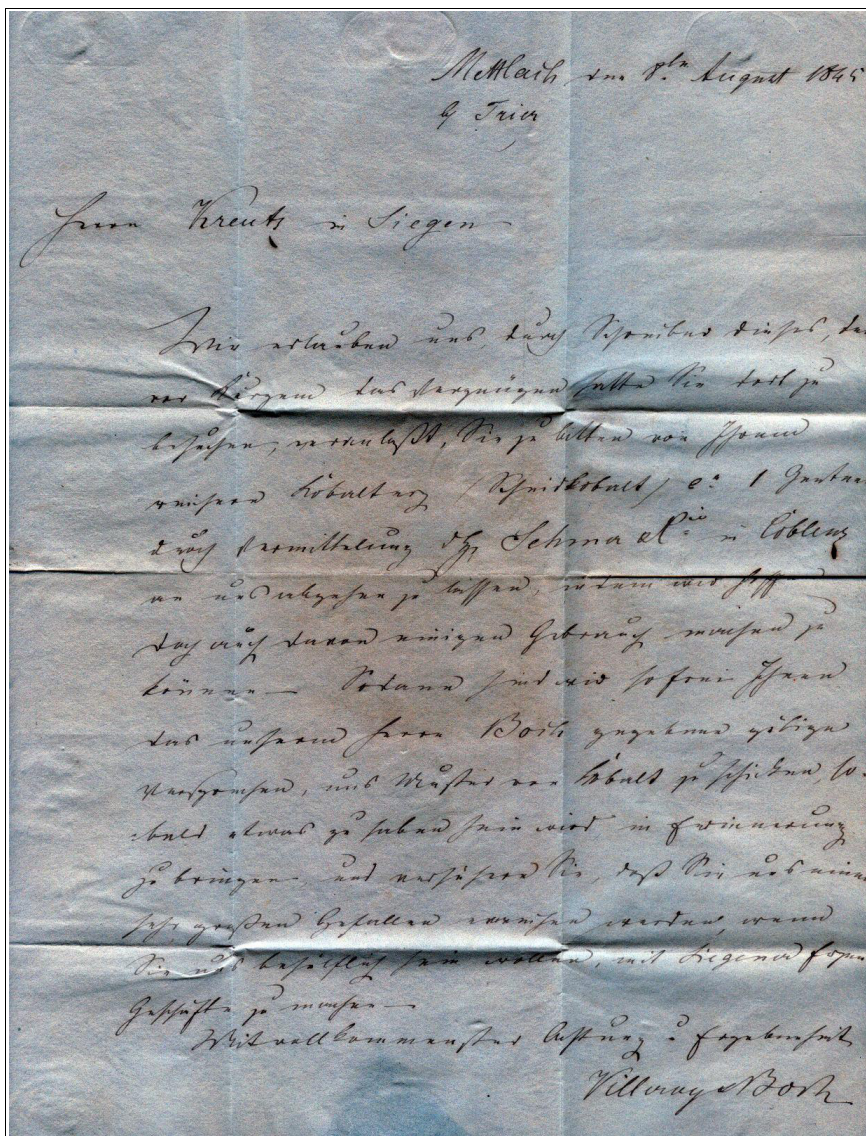 Mettlach den 8ten August 1845
b/ Trier
Herrn Kreutz in Siegen
Wir erlauben uns durch Schreiber dieses, der
vor Kurzem das Vergnügen hatte Sie dort zu
besuchen, veranlaßt, Sie zu bitten von Ihrem
Kobalterz (Scheidkobalt) ca 1 Centner
durch Vermittelung Schmal in Coblenz
an uns abgehen zu lassen, indem wir hoffen
doch auch davon einigen Gebrauch machen zu
können — Sodann sind wir so frei Ihnen
das unserm Herrn Boch gegebene gütige
Versprechen, uns Muster von Kobalt zu schicken, so-
-bald etwas zu haben sein wird in Erinnerung
zu bringen, und versichern Sie, daß Sie uns einen
sehr großen Gefallen erweisen werden, wenn
Sie uns behülflich sein wollen, mit Siegener Erzen
Geschäfte zu machen —
Mit vollkommenster Achtung u Ergebenheit
Villeroy & Boch